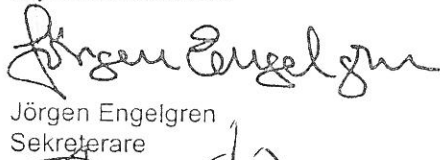 Jörgen Engelgren
Jörgen Engelgren
Sekreterare